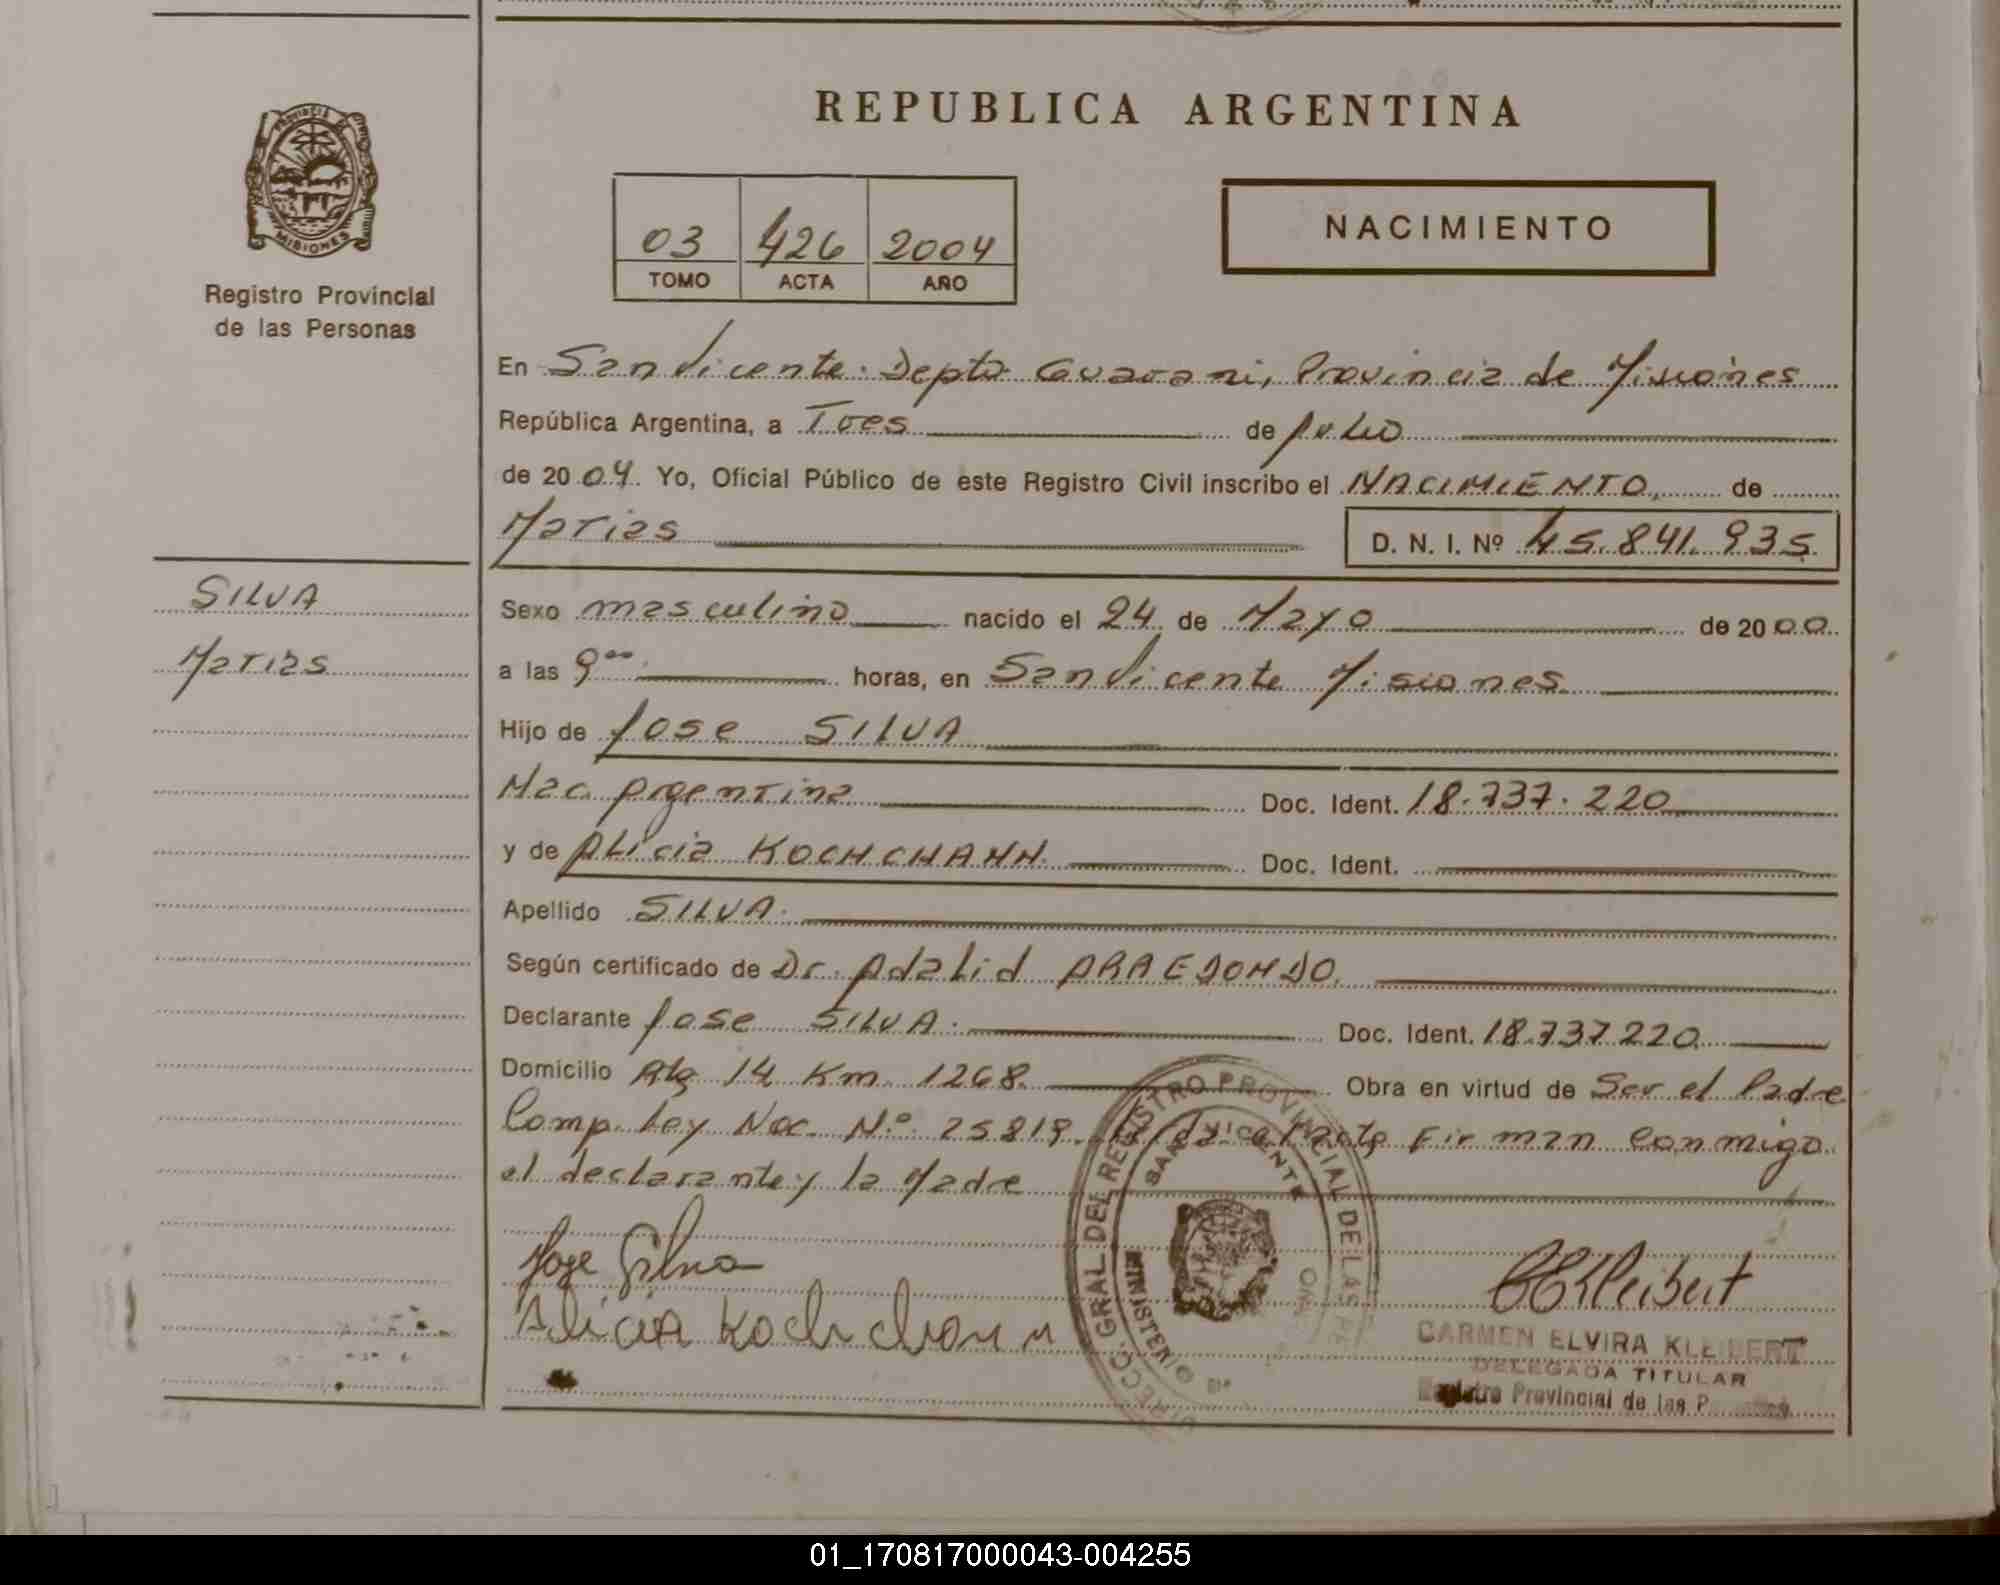 REPUBLICA ARGENTINA
PROVINCIA DE
MISIONES
Registro Provincial
de las Personas
03 426 2004
TOMO ACTA AÑO
NACIMIENTO
En San Vicente. Depto Guarani, Provincia de Misiones
República Argentina, a Tres de Julio
de 2004. Yo, Oficial Público de este Registro Civil inscribo el NACIMIENTO, de
Matias D. N. I. Nº 45.841.935
SILVA
Matias
Sexo masculino nacido el 24 de Mayo de 2000
a las 9⁰⁰ horas, en San Vicente Misiones
Hijo de Jose SILVA
Nac. Argentina Doc. Ident. 18.737.220
y de Alicia KOCHCHANN Doc. Ident.
Apellido SILVA.
Según certificado de Dr. Adalid ARREDONDO.
Declarante Jose SILVA. Doc. Ident. 18.737.220
Domicilio Rta 14 Km. 1268. Obra en virtud de Ser el Padre
Comp. Ley Nac. Nº 25819. el acta Firman conmigo
el declarante y la Madre
Jose Silva
Alicia Kochchann
DIRECC. GRAL DEL REGISTRO PROVINCIAL DE LAS
SAN VICENTE
MINISTERIO
CARMEN ELVIRA KLEIBERT
DELEGADA TITULAR
Registro Provincial de las
01_170817000043-004255